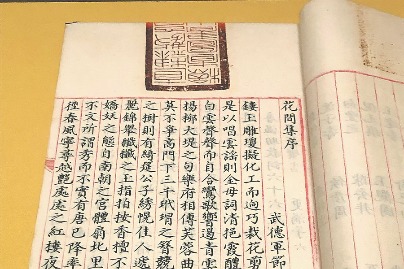 花間集序
武德軍節
鏤玉雕瓊擬化工而迥巧裁花剪
是以唱雲謠則金母詞清挹霞醴
白雪聲聲而自合鸞歌響遏青雲
楊柳大堤之句樂府相傳芙蓉曲
莫不爭高門下三千玳瑁之簪競
之樹則有綺筵公子繡幌佳人遞
麗錦舉纖纖之玉指拍按香檀不
嬌嬈之態自南朝之宮體扇北里
不文所謂秀而不實有唐已降率
徑春風寧尋越艷處處之紅樓夜